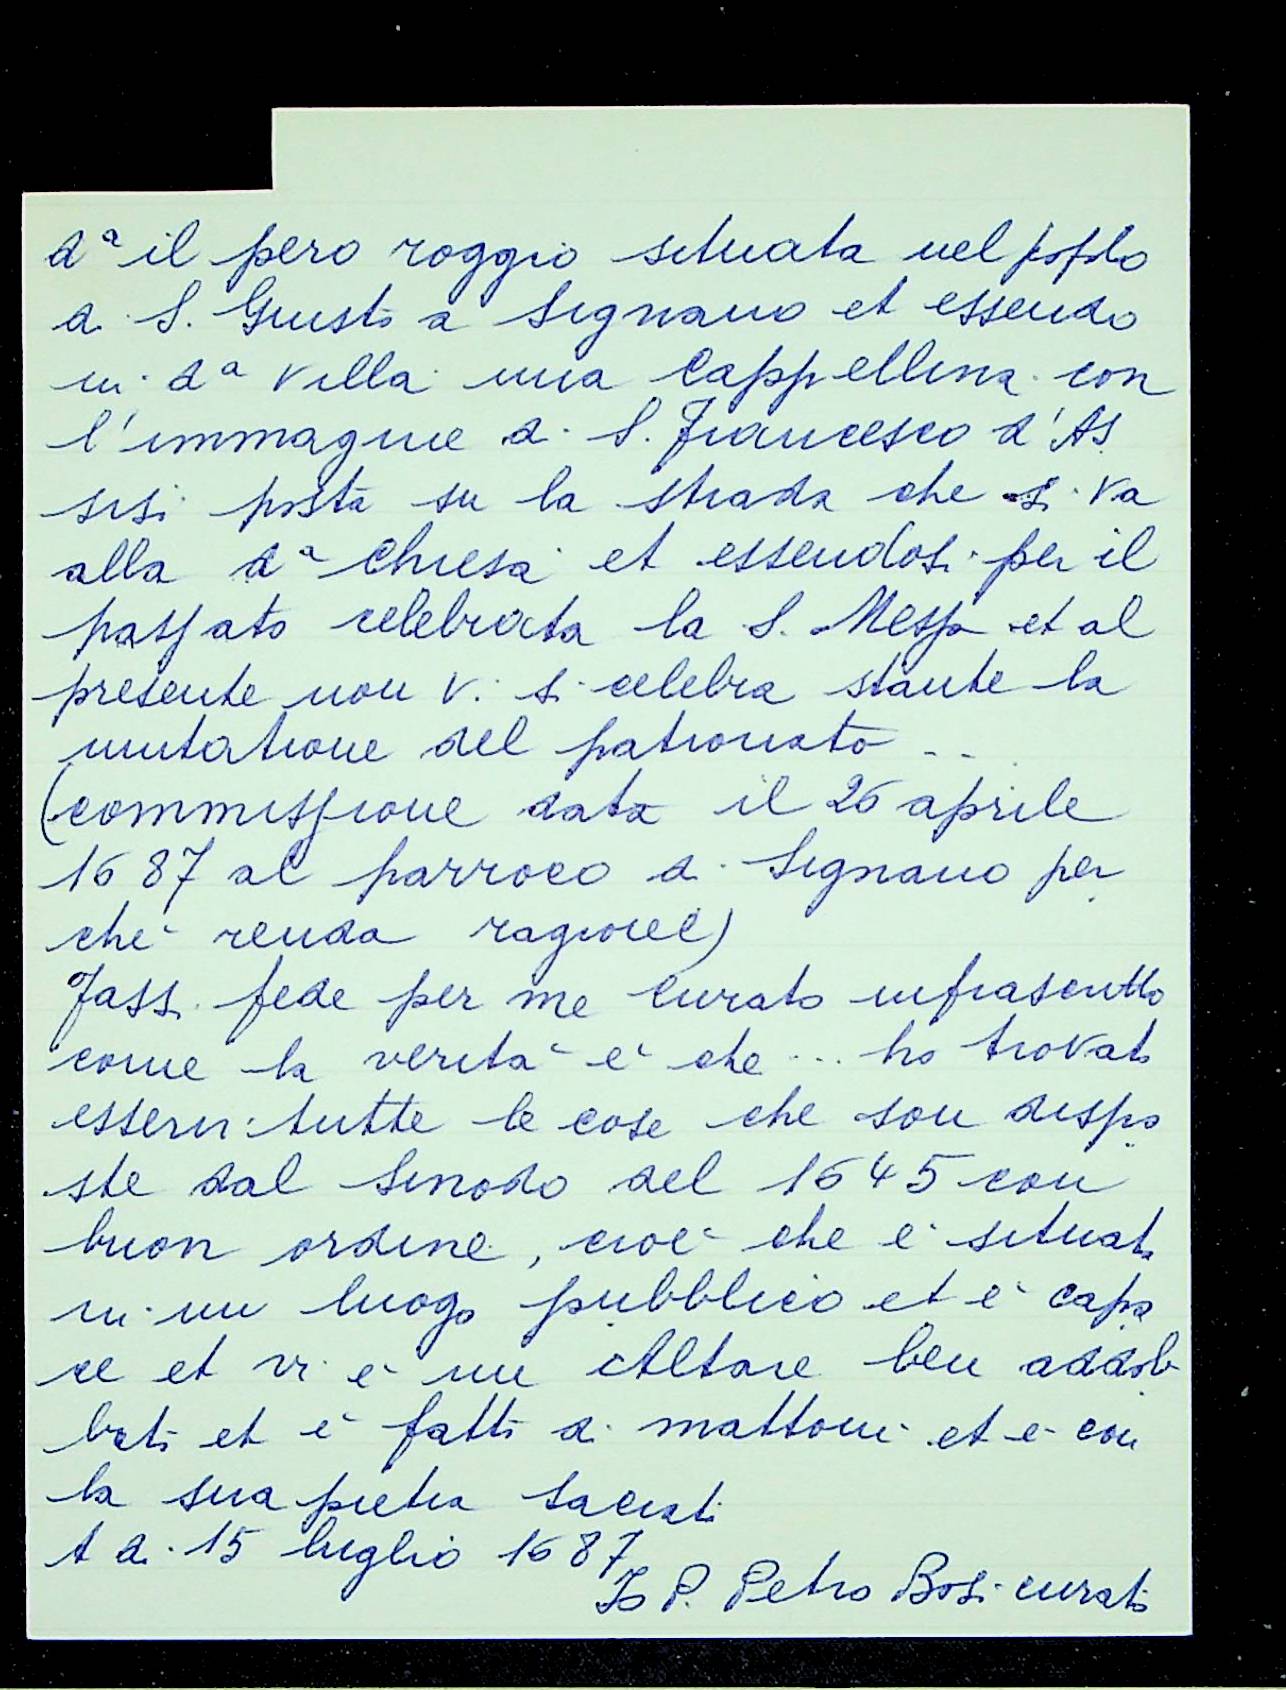 dª il pero roggio situata nel popolo
di S. Giusto a Signano et essendo
in dª villa una Cappellina con
l'immagine di S. Francesco d'As
sisi posta su la strada che si va
alla dª Chiesa et essendosi per il
passato celebrata la S. Messa et al
presente non vi si celebra stante la
mutatione del patronato ..
(commissione data il 26 aprile
1687 al parroco di Signano per
chè renda ragione)
Fassi fede per me Curato infrascritto
come la verità è che ... ho trovato
esservi tutte le cose che son dispo
ste dal Sinodo del 1645 con
buon ordine, cioè che è situata
in un luogo pubblico et è capa
ce et vi è un Altare ben addob
bato et è fatto di mattoni et è con
la sua pietra sacrata
A di 15 luglio 1687
Io P. Petro Bosi curato